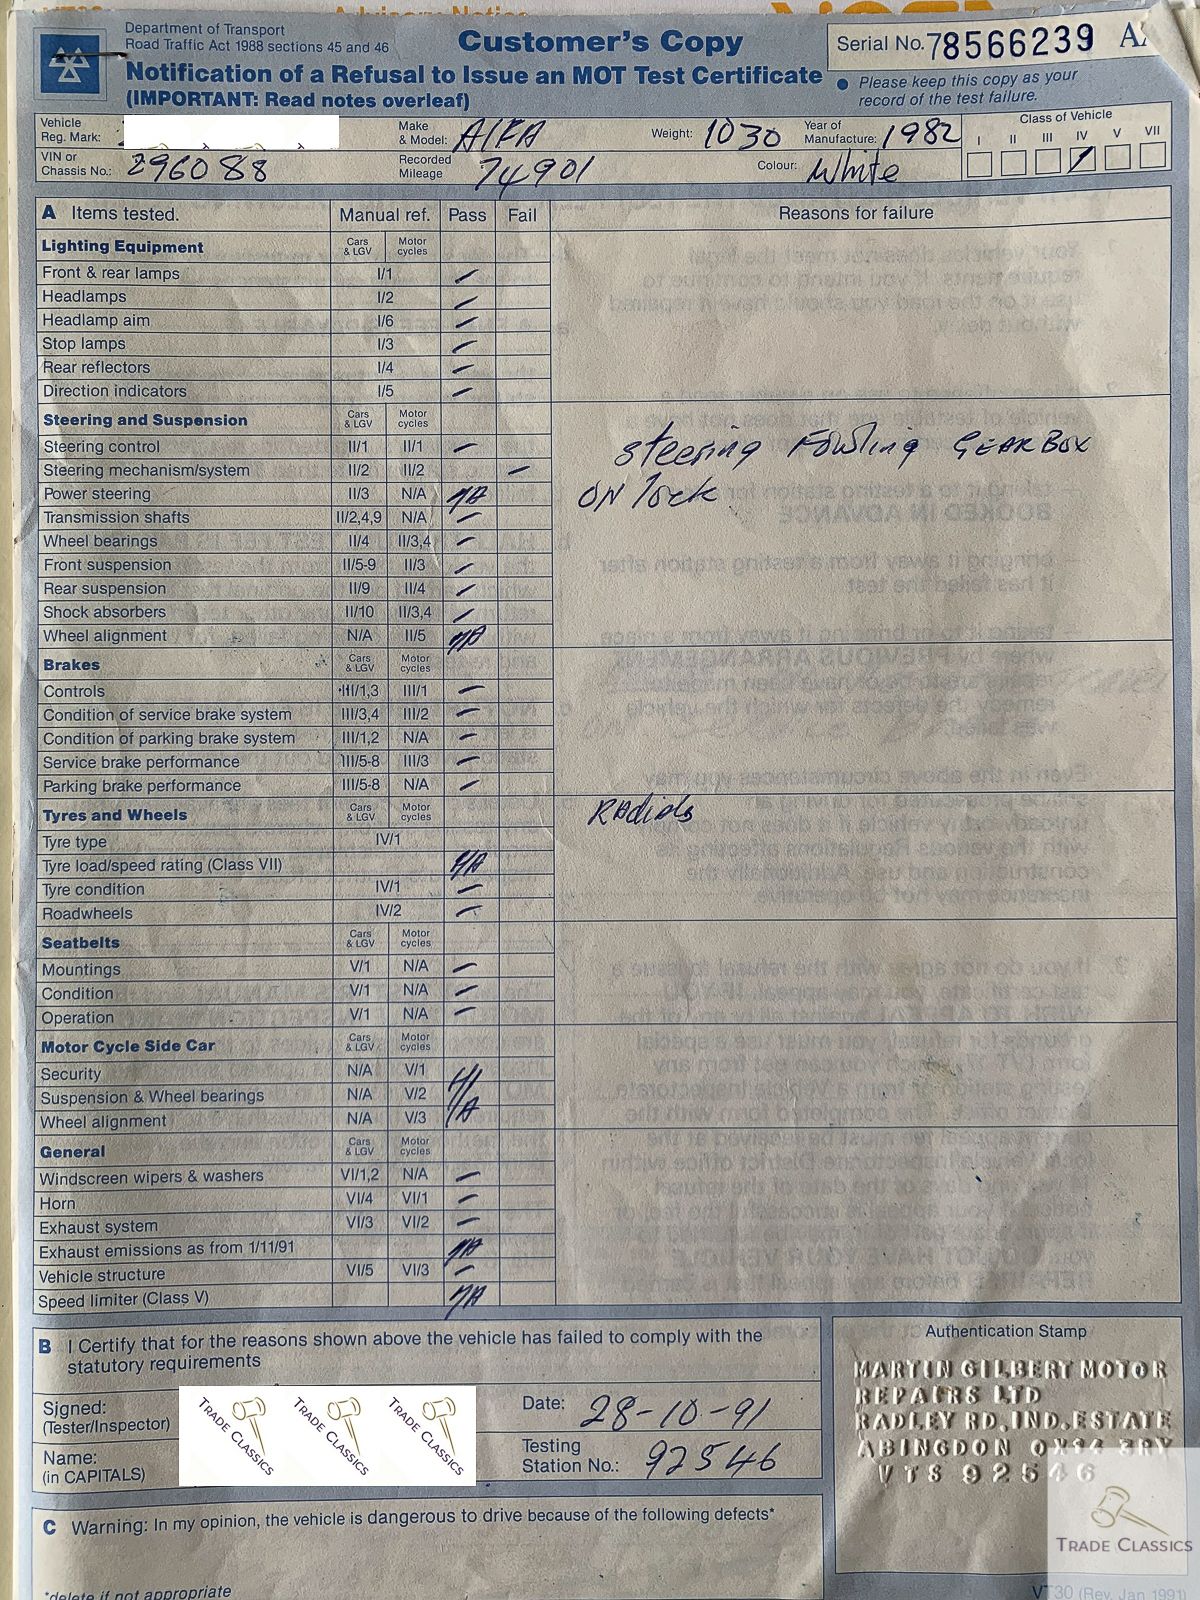 Advisory Notice
Department of Transport
Road Traffic Act 1988 sections 45 and 46
Customer's Copy
Serial No. 78566239 A
Notification of a Refusal to Issue an MOT Test Certificate
(IMPORTANT: Read notes overleaf)
● Please keep this copy as your
record of the test failure.
Vehicle
Reg. Mark:
Make
& Model: AlFA
Weight: 1030
Year of
Manufacture: 1982
Class of Vehicle
I II III IV V VII
VIN or
Chassis No.: 296088
Recorded
Mileage 74901
Colour: White
A Items tested. Manual ref. Pass Fail Reasons for failure
Lighting Equipment Cars & LGV Motor cycles
Front & rear lamps I/1
Headlamps I/2
Headlamp aim I/6
Stop lamps I/3
Rear reflectors I/4
Direction indicators I/5
Steering and Suspension Cars & LGV Motor cycles
Steering control II/1 II/1
Steering mechanism/system II/2 II/2
Power steering II/3 N/A NA
Transmission shafts II/2,4,9 N/A
Wheel bearings II/4 II/3,4
Front suspension II/5-9 II/3
Rear suspension II/9 II/4
Shock absorbers II/10 II/3,4
Wheel alignment N/A II/5 NA
Steering Fowling GEARBOX
ON lock
Brakes Cars & LGV Motor cycles
Controls III/1,3 III/1
Condition of service brake system III/3,4 III/2
Condition of parking brake system III/1,2 N/A
Service brake performance III/5-8 III/3
Parking brake performance III/5-8 N/A
Tyres and Wheels Cars & LGV Motor cycles
Radials
Tyre type IV/1
Tyre load/speed rating (Class VII) NA
Tyre condition IV/1
Roadwheels IV/2
Seatbelts Cars & LGV Motor cycles
Mountings V/1 N/A
Condition V/1 N/A
Operation V/1 N/A
Motor Cycle Side Car Cars & LGV Motor cycles
Security N/A V/1
Suspension & Wheel bearings N/A V/2 N/A
Wheel alignment N/A V/3
General Cars & LGV Motor cycles
Windscreen wipers & washers VI/1,2 N/A
Horn VI/4 VI/1
Exhaust system VI/3 VI/2
Exhaust emissions as from 1/11/91 NA
Vehicle structure VI/5 VI/3
Speed limiter (Class V) NA
B I Certify that for the reasons shown above the vehicle has failed to comply with the
statutory requirements
Signed:
(Tester/Inspector)
Date: 28-10-91
Name:
(in CAPITALS)
Testing
Station No.: 92546
TRADE CLASSICS
TRADE CLASSICS
TRADE CLASSICS
Authentication Stamp
MARTIN GILBERT MOTOR
REPAIRS LTD
RADLEY RD,IND.ESTATE
ABINGDON OX14 3RY
VTS 92546
C Warning: In my opinion, the vehicle is dangerous to drive because of the following defects*
*delete if not appropriate
VT30 (Rev. Jan 1991)
TRADE CLASSICS